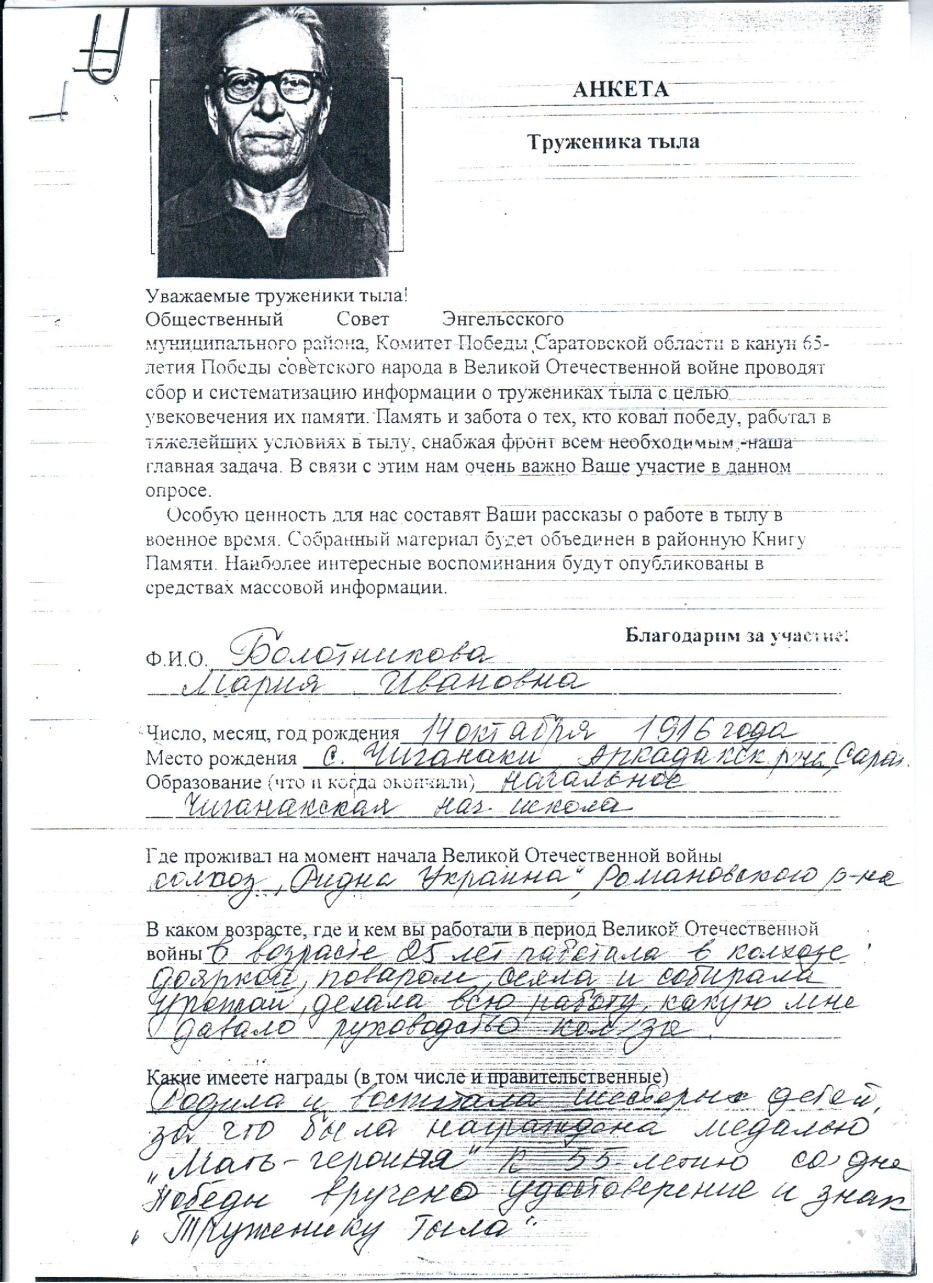 АНКЕТА
Труженика тыла
Уважаемые труженики тыла!
Общественный Совет Энгельсского
муниципального района, Комитет Победы Саратовской области в канун 65-
летия Победы советского народа в Великой Отечественной войне проводят
сбор и систематизацию информации о тружениках тыла с целью
увековечения их памяти. Память и забота о тех, кто ковал победу, работал в
тяжелейших условиях в тылу, снабжая фронт всем необходимым,-наша
главная задача. В связи с этим нам очень важно Ваше участие в данном
опросе.
Особую ценность для нас составят Ваши рассказы о работе в тылу в
военное время. Собранный материал будет объединен в районную Книгу
Памяти. Наиболее интересные воспоминания будут опубликованы в
средствах массовой информации.
Благодарим за участие!
Ф.И.О. Болотникова
Мария Ивановна
Число, месяц, год рождения 14 октября 1916 года
Место рождения с. Чиганаки Аркадакск. р-на, Сарат.
Образование (что и когда окончили) начальное
Чиганакская нач. школа
Где проживал на момент начала Великой Отечественной войны
колхоз "Ридна Украина", Романовского р-на
В каком возрасте, где и кем вы работали в период Великой Отечественной
войны в возрасте 25 лет работала в колхозе
дояркой, поваром, сеяла и собирала
урожай, делала всю работу, какую мне
давало руководство колхоза.
Какие имеете награды (в том числе и правительственные)
Родила и воспитала шестерых детей,
за что была награждена медалью
"Мать-героиня" к 55-летию со дня
Победы вручено удостоверение и знак
"Труженику тыла"